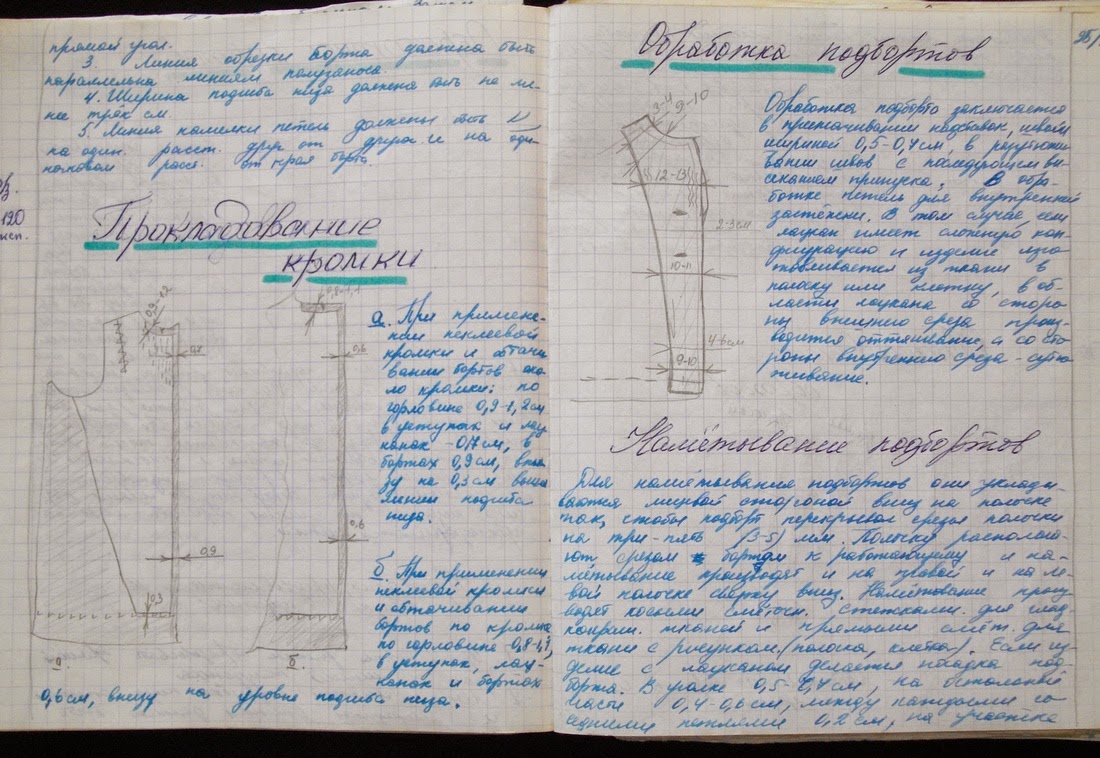 прямой угол.
3. Линия обрезки борта должна быть
параллельна линиям полузаноса.
4. Ширина подгиба низа должна быть не ме-
нее трёх см.
5. Линия намелки петель должны быть
на один. расст. друг от друга и на оди-
наковом расст. от края борта.
120
Прокладование
кромки
0,9-1,2
0,7
0,9
0,3
а.
0,8-1,1
0,6
0,6
б.
а. При примене-
нии неклеевой
кромки и обтачи
вании бортов око
ло кромки: по
горловине 0,9-1,2см
в уступах и лац
канах 0,7см, в
бортах 0,9см, вни
зу на 0,3см выше
линии подгиба
низа.
б. При применении
неклеевой кромки
и обтачивании
бортов по кромке
по горловине -0,8-1,1,
в уступах, лац-
канах и бортах
0,6см, внизу на уровне подгиба низа.
Обработка подбортов
3-4
9-10
12-13
2-3см
10-11
4-6см
9-10
Обработка подборта заключается
в притачивании надставок, швом
шириной 0,5-0,7см, в разутюжи-
вании швов с последующем вы-
секанием припуска, в обра-
ботке петель для внутренней
застёжки. В том случае если
лацкан имеет сложную кон-
фигурацию и изделие изго
товливается из ткани в
полоску или клетку, в об-
ласти лацкана со сторо
ны внешнего среза произ-
водится оттягивание, а со сто
роны внутреннего среза - сутю-
живание.
Намётывание подбортов
Для намётывания подбортов они уклады-
ваются лицевой стороной вниз на полочке
так, чтобы подборт перекрывал срезы полочки
на три-пять (3-5) мм. Полочку располага-
ют срезом бортам к работающему и на-
мётывание производят и на правой и на ле-
вой полочке сверху вниз. Намётование произ
водят косыми смёточн. стежками для глад
кокраш. тканей и прямыми смёт. для
ткани с рисунком (полоска, клетка). Если из
делие с лацканом делается посадка под-
борта. В уголке 0,5-0,7см, на остальной
части 0,4-0,6см, между каждыми со
седними петлями 0,2см, на участке